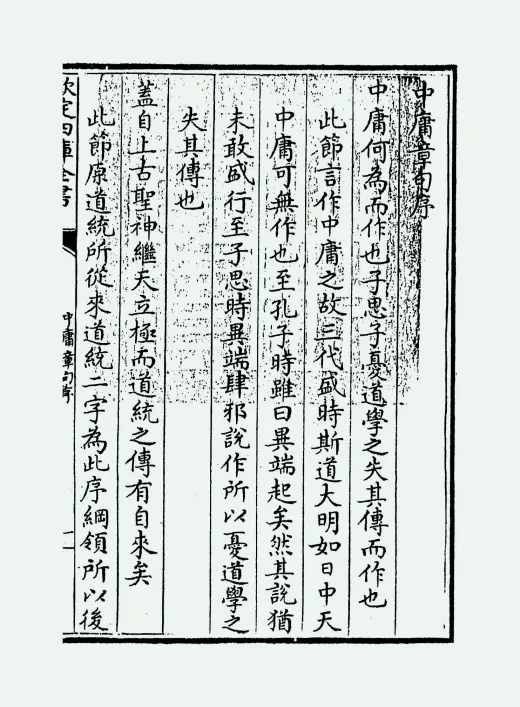 中庸章句序
中庸何為而作也子思子憂道學之失其傳而作也
此節言作中庸之故三代盛時斯道大明如日中天
中庸可無作也至孔子時雖曰異端起矣然其說猶
未敢盛行至子思時異端肆邪說作所以憂道學之
失其傳也
蓋自上古聖神繼天立極而道統之傳有自來矣
此節原道統所從來道統二字為此序綱領所以後
欽定四庫全書
中庸章句序
一